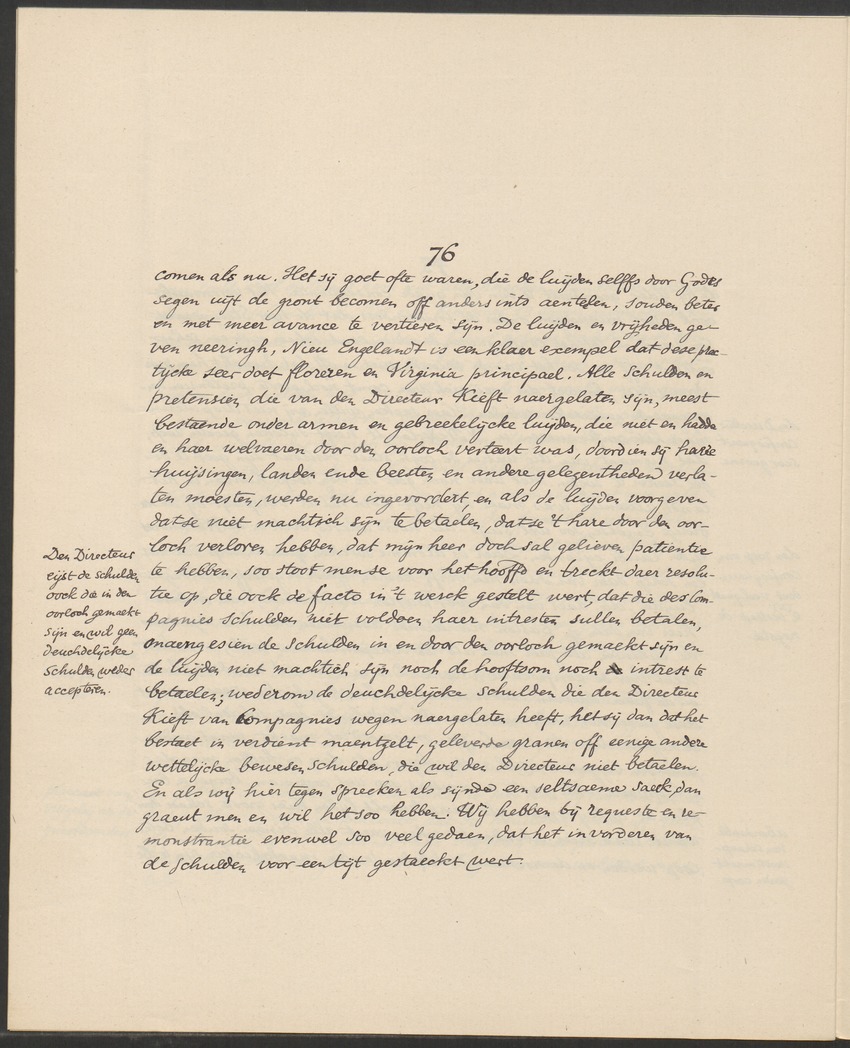 76
comen als nu. Het sij goet ofte waren, die de luijden selffs door Godts
segen uijt de gront becomen off andersints aentelen, souden beter
en met meer avance te vertieren sijn. De luijden en vrijheden ge-
ven neeringh, Nieu Engelandt is een klaer exempel dat dese prac-
tijcke seer doet floreren en Virginia principael. Alle schulden en
pretensien die van den Directeur Kieft naergelaten sijn, meest
bestaende onder armen en gebreekelijcke luijden, die niet en hadde
en haer welvaeren door den oorloch verteert was, doordien sij hare
huijsingen, landen ende beesten en andere gelegentheden verla-
ten moesten, werden nu ingevordert, en als de luijden voorgeven
datse niet machtich sijn te betaelen, datse 't hare door den oor-
loch verloren hebben, dat mijn heer doch sal gelieven patientie
te hebben, soo stoot men se voor het hooffd en treckt daer resolu-
tie op, die oock de facto in 't werck gestelt wert, dat die des Com-
pagnies schulden niet voldoen haer intresten sullen betalen,
onaengesien de schulden in en door den oorloch gemaekt sijn en
de luijden niet machtich sijn noch de hooftsom noch intrest te
betaelen; wederom de deuchdelijcke schulden die den Directeur
Kieft van Compagnies wegen naergelaten heeft, het sij dan dat het
bestaet in verdient maentgelt, geleverde granen off eenige andere
wettelijcke bewesen schulden, die wil den Directeur niet betaelen.
En als wij hier tegen sprecken als sijnde een seltsaeme saeck, dan
graeut men en wil het soo hebben. Wij hebben bij requeste en re-
monstrantie evenwel soo veel gedaen, dat het invorderen van
de schulden voor een tijt gestaeckt wert.
Den Directeur
eijst de schulden
oock die in den
oorloch gemaekt
sijn en wil geen
deuchdelijcke
schulden weder
accepteren.